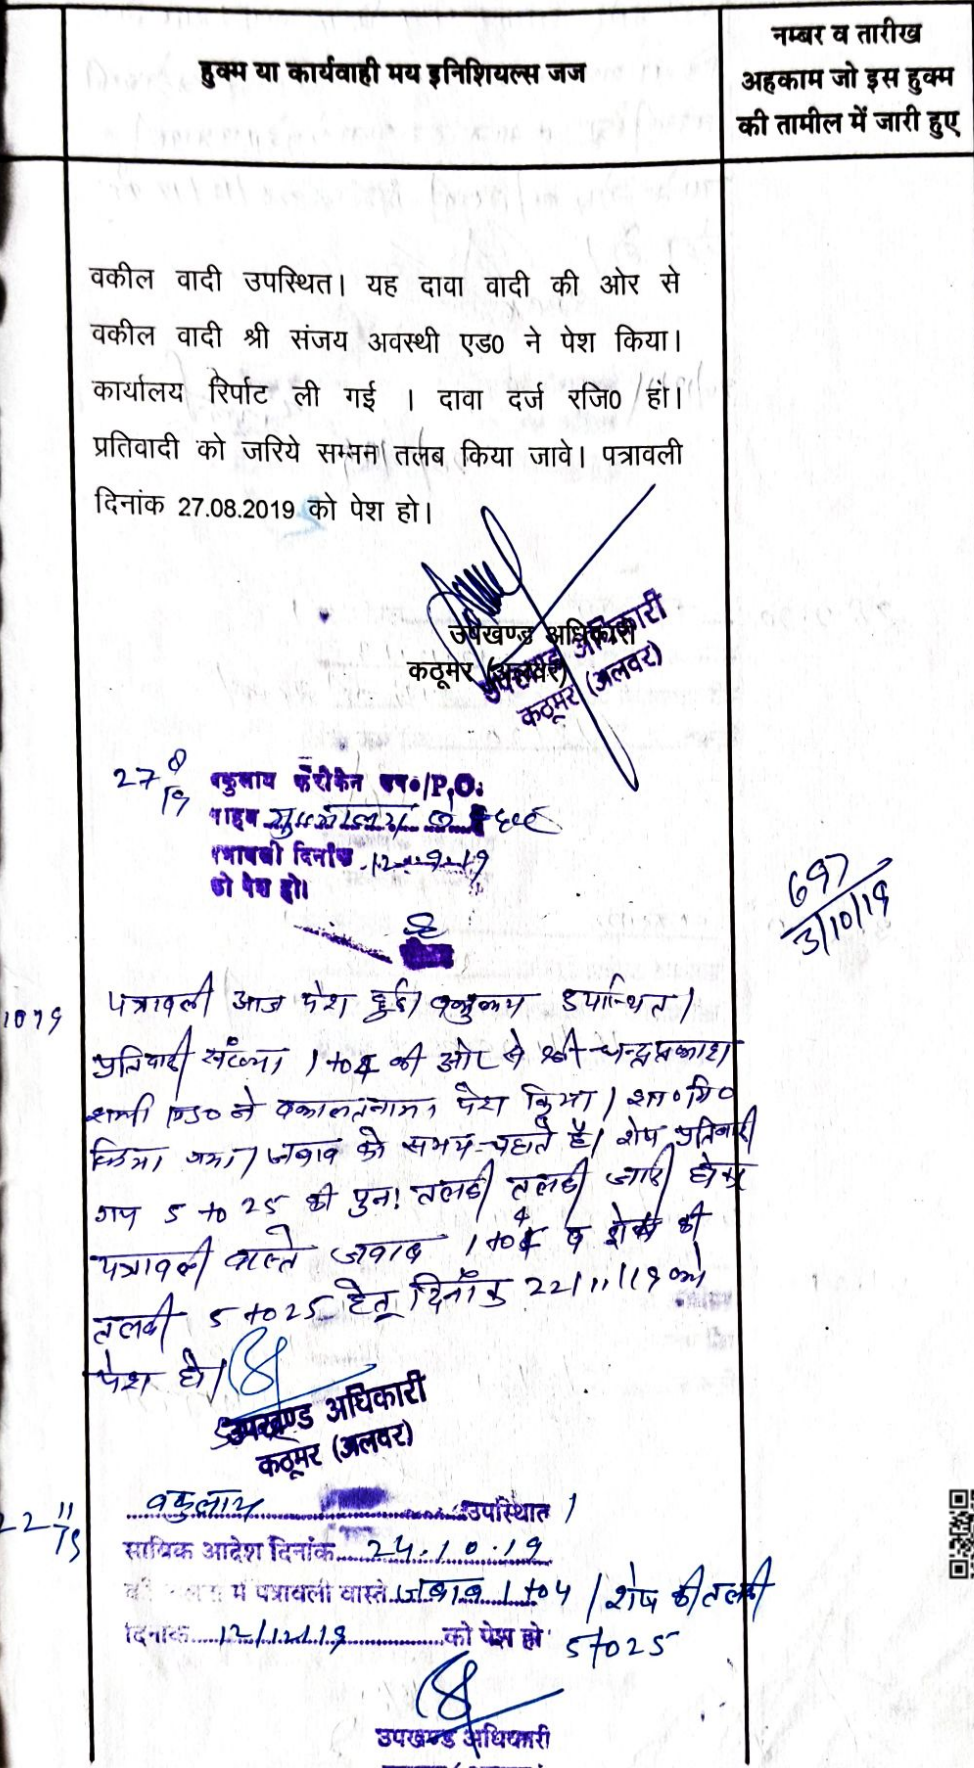 हुक्म या कार्यवाही मय इनिशियल्स जज
नम्बर व तारीख
अहकाम जो इस हुक्म
की तामील में जारी हुए
वकील वादी उपस्थित। यह दावा वादी की ओर से
वकील वादी श्री संजय अवस्थी एड0 ने पेश किया।
कार्यालय रिर्पाट ली गई । दावा दर्ज रजि0 हो।
प्रतिवादी को जरिये सम्मन तलब किया जावे। पत्रावली
दिनांक 27.08.2019 को पेश हो।
उपखण्ड अधिकारी
कठूमर (अलवर)
उपखण्ड अधिकारी
कठूमर (अलवर)
27 8
19
वकुलाय फरीकेन उप०/P.O.
साहब
पत्रावली दिनांक 12-9-19
को पेश हो।
697
3/10/19
पत्रावली आज पेश हुई। वकुलाय उपस्थित।
प्रतिवादी संख्या 1 to 4 की ओर से श्री चन्द्रप्रकाश
शर्मा एड0 ने वकालतनामा पेश किया। शा०मि०
किया गया। जबाव को समय चहाते है। शेष प्रतिवादी
गण 5 to 25 की पुनः तलबी तलबी जारी होकर
पत्रावली वास्ते जवाब 1 to 4 व शेष की
तलबी 5 to 25 हेतू दिनाँक 22/11/19 को
पेश हो।
उपखण्ड अधिकारी
कठूमर (अलवर)
22 11
19
वकुलाय उपस्थित।
साबिक आदेश दिनांक 24.10.19
में पत्रावली वास्ते जबाब 1 to 4 / शेष की तलबी
दिनांक 12/12/19 को पेश हो 5 to 25
उपखण्ड अधिकारी